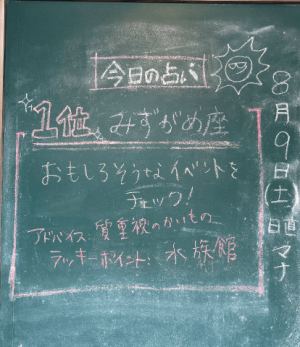 今日の占い
1位 みずがめ座
おもしろそうなイベントを
チェック!
アドバイス:質重視のかいもの
ラッキーポイント:水族館
8月9日(土)日直マナ